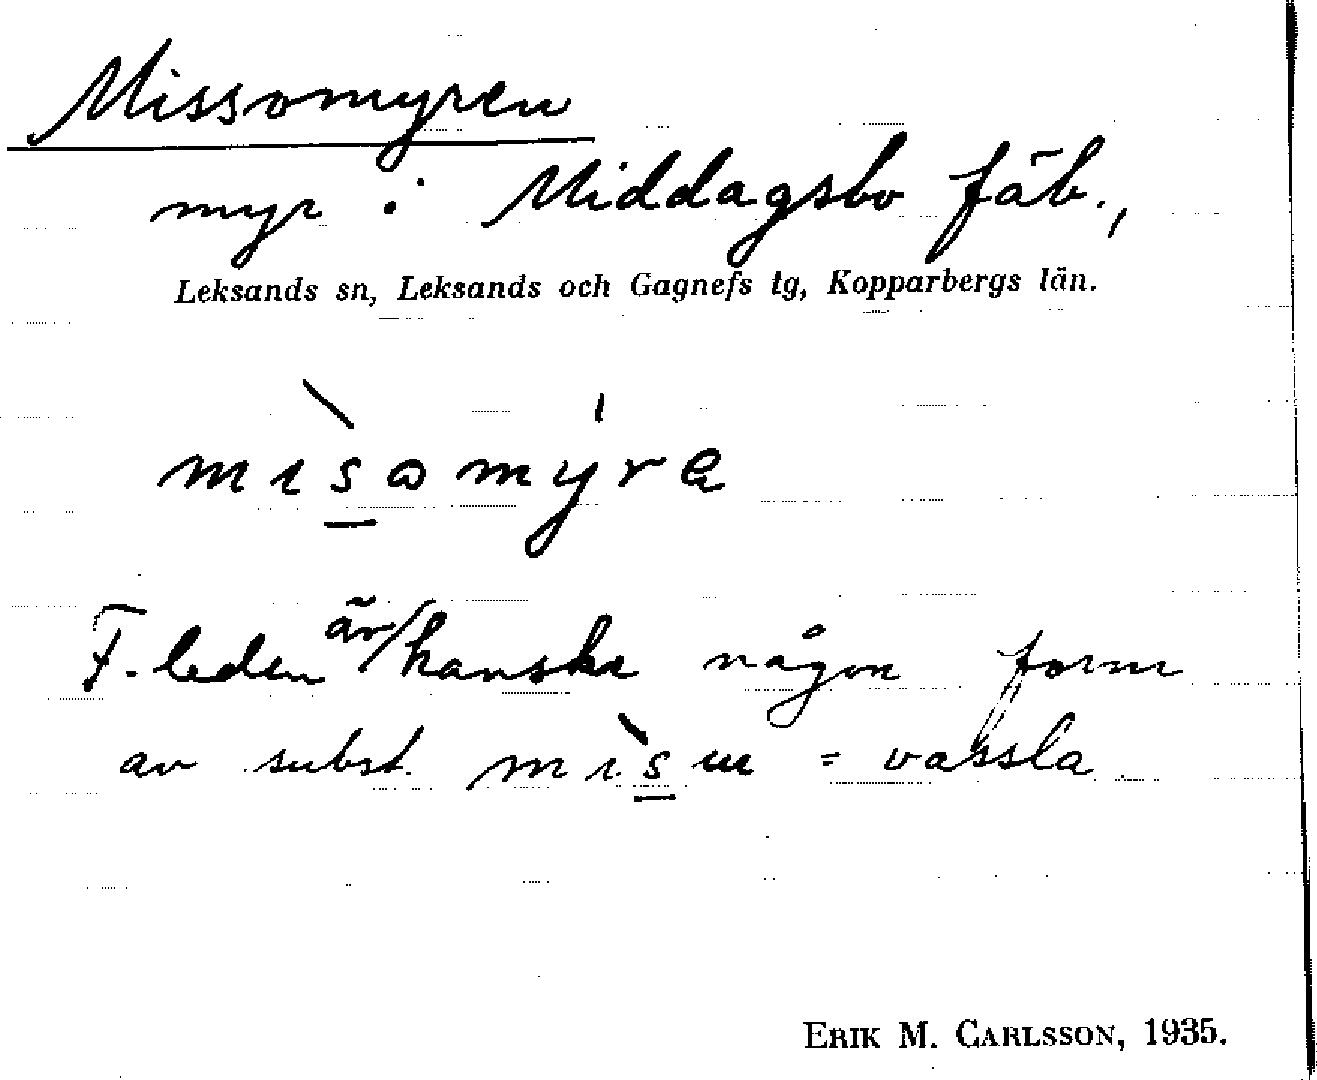 Missomyren
myr i Middagsbo fäb.,
Leksands sn, Leksands och Gagnefs tg, Kopparbergs län.
mɪ̀s̲ɷmýra
F. leden är kanske någon form
av subst. mɪ̀s̲u = vassla
ERIK M. CARLSSON, 1935.